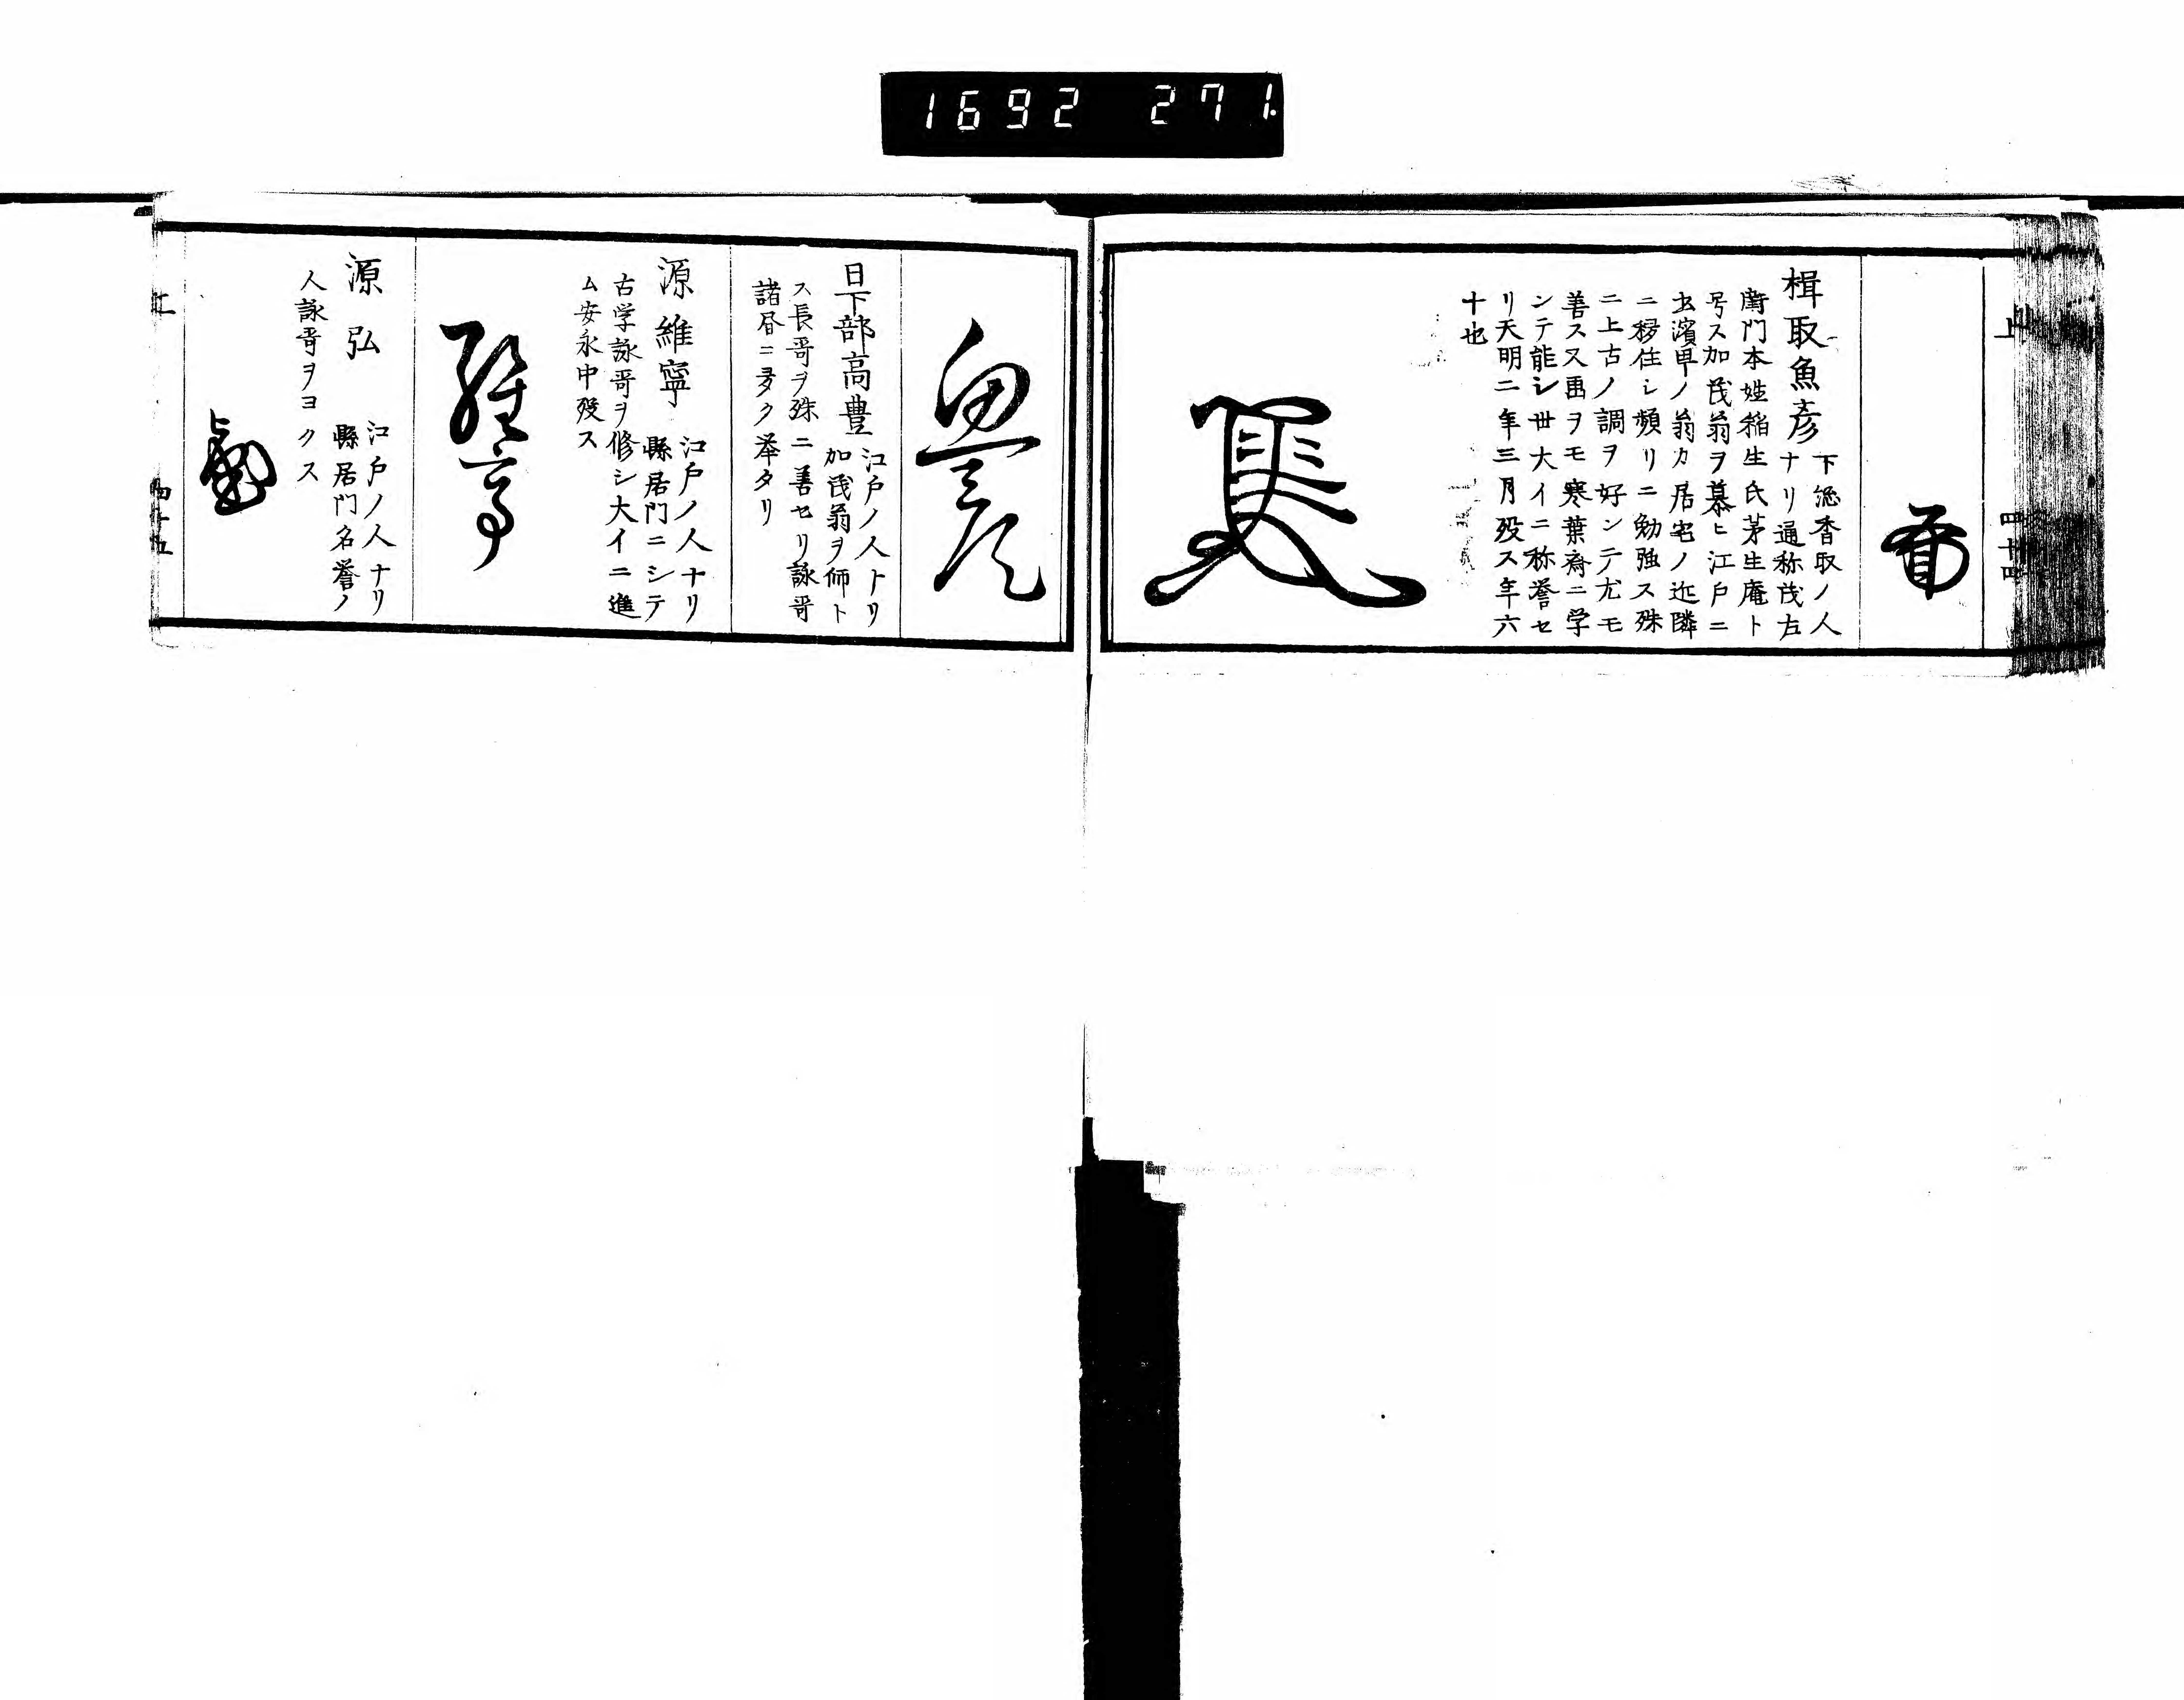 1692 271
上
四十四
楫取魚彦 下総香取ノ人
ナリ通称茂左
衛門本姓稲生氏茅生庵ト
号ス加茂翁ヲ慕ヒ江戸ニ
出濱甼ノ翁カ居宅ノ近隣
ニ移住シ頻リニ勉強ス殊
ニ上古ノ調ヲ好ンテ尤モ
善ス又画ヲモ寒葉斎ニ学
ンテ能シ世大イニ称誉セ
リ天明二年三月歿ス年六
十也
日下部高豊 江戸ノ人トリ
加茂翁ヲ師ト
ス長哥ヲ殊ニ善セリ詠哥
諸昏ニ多ク挙タリ
源維寧 江戸ノ人ナリ
縣居門ニシテ
古学詠哥ヲ修シ大イニ進
ム安永中歿ス
源弘 江戸ノ人ナリ
縣居門名誉ノ
人詠哥ヲヨクス
上
四十五